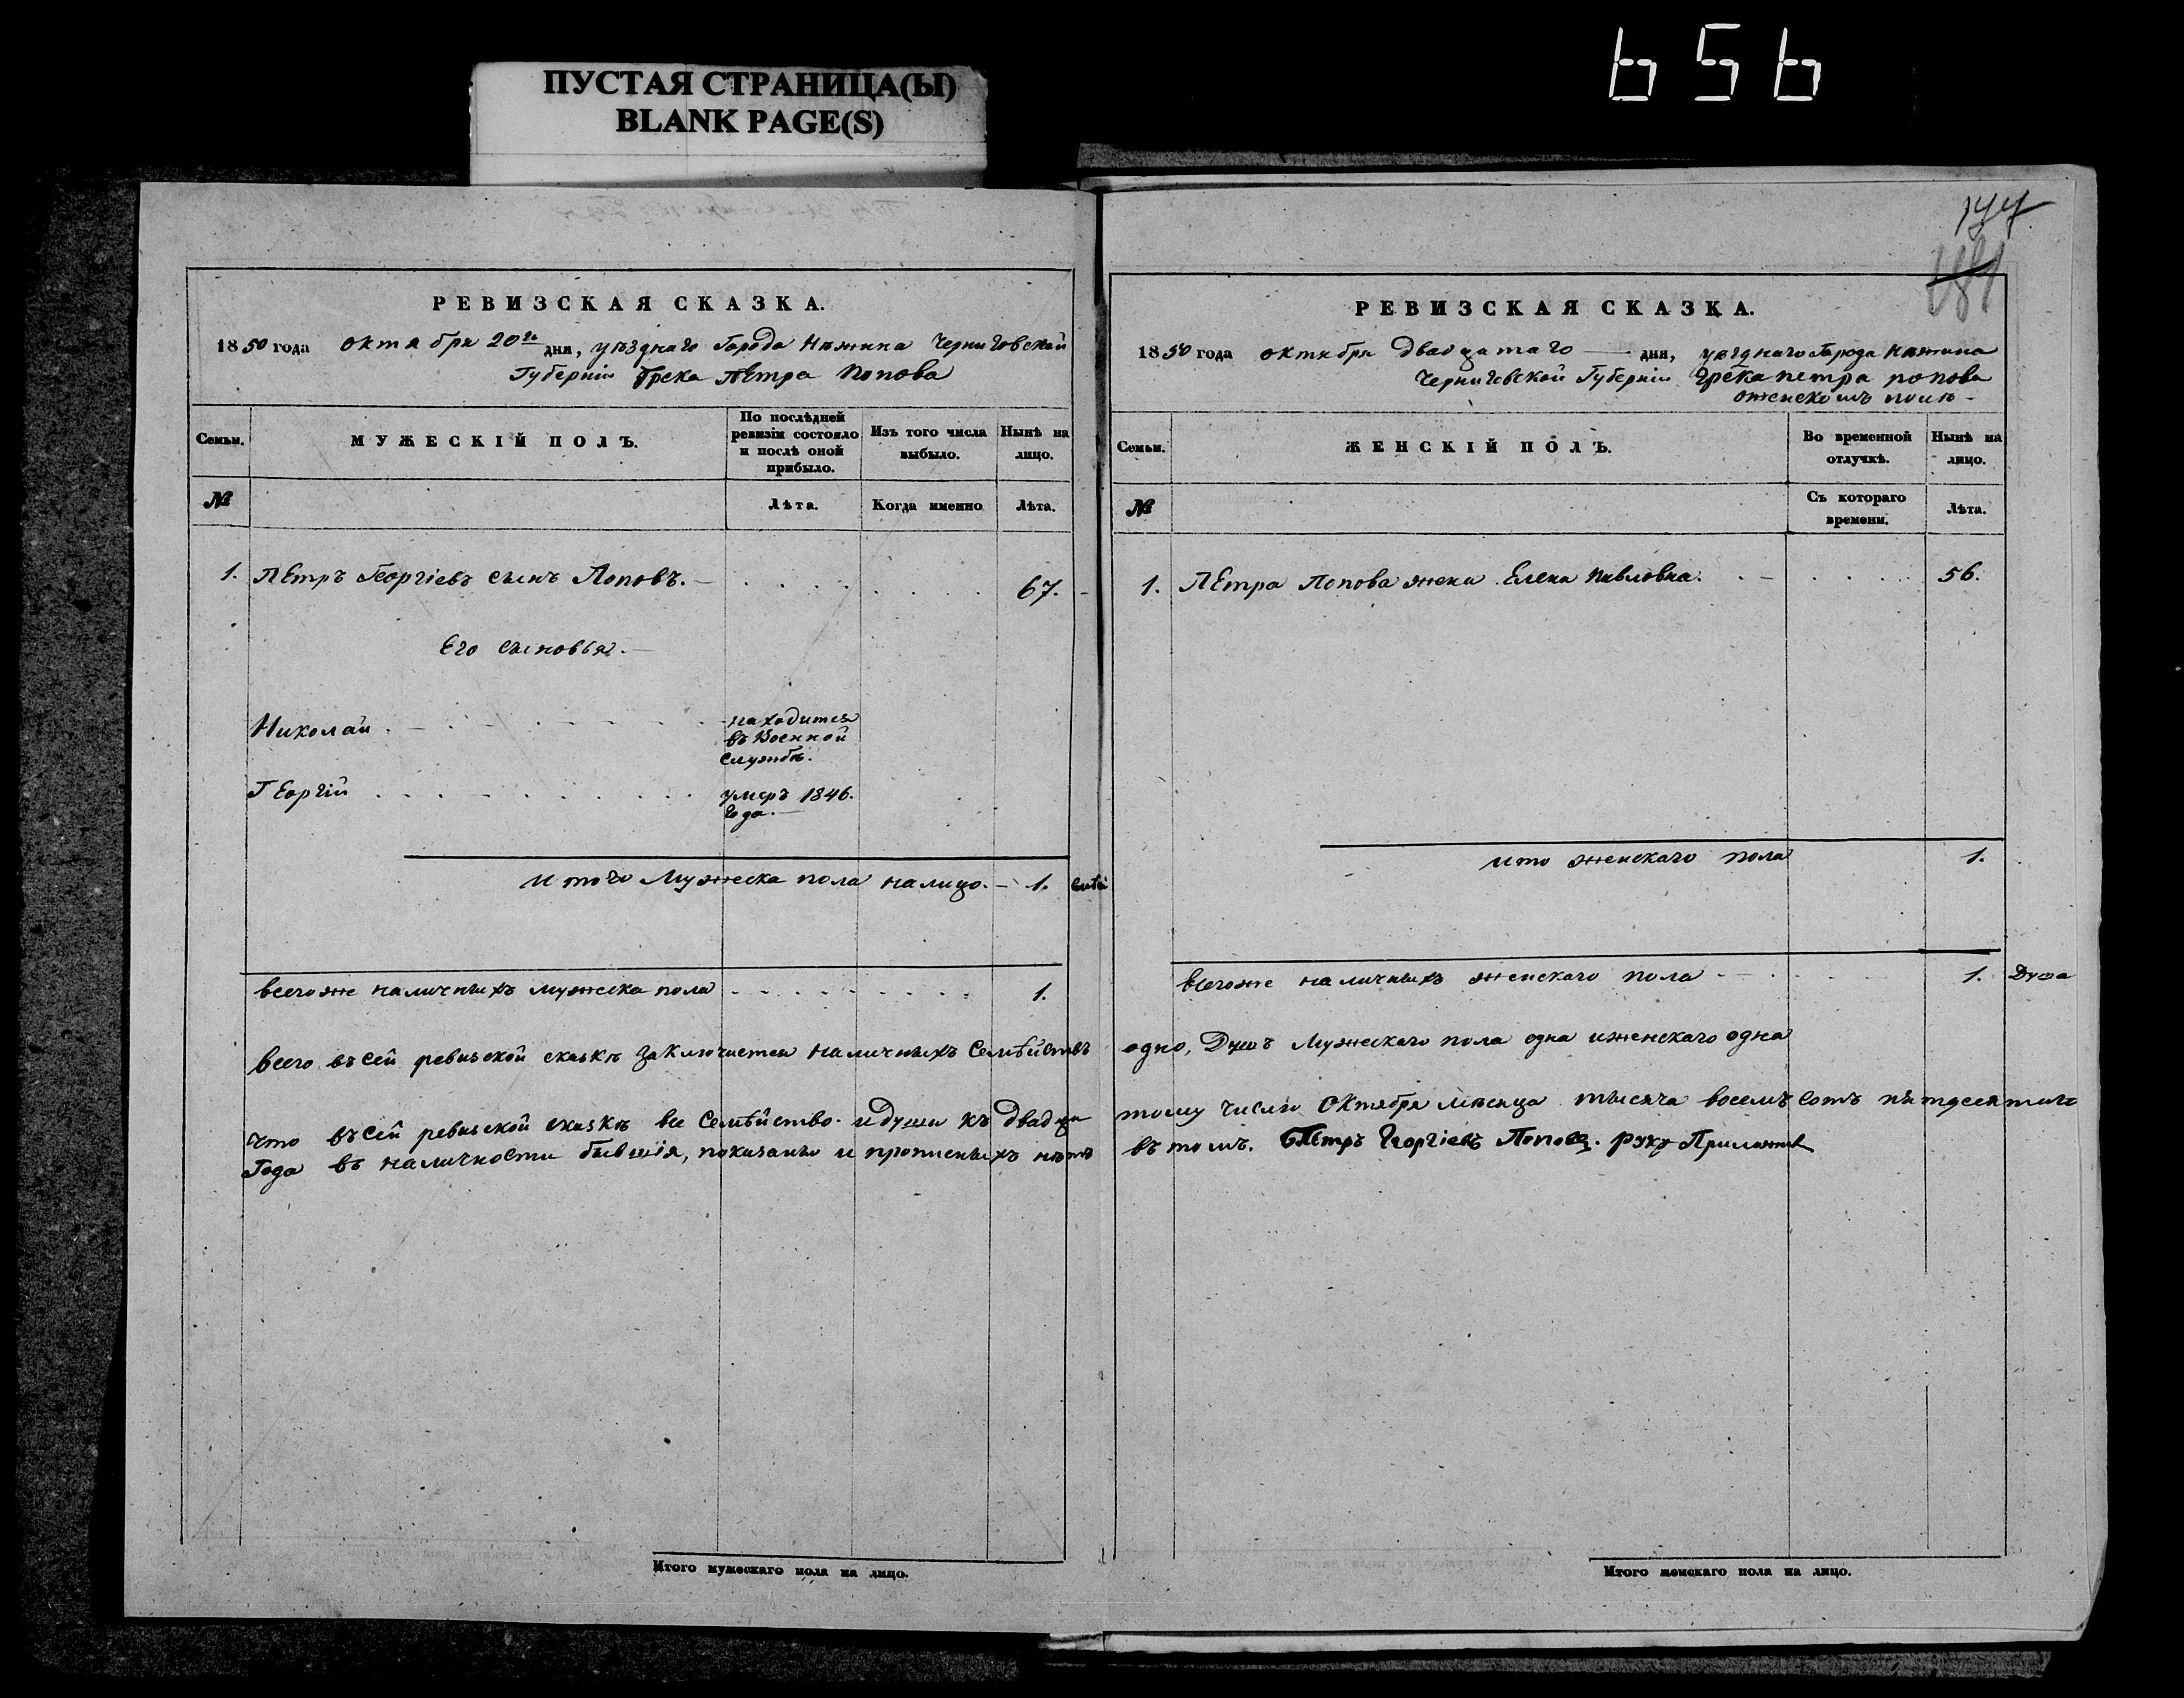 ПУСТАЯ СТРАНИЦА(Ы)
BLANK PAGE(S)
656
РЕВИЗСКАЯ СКАЗКА.
1850 года октября 20го дня, уѣзднаго Города Нѣжина Черниговской
Губерніи Грека Петра Попова
Семьи.
МУЖЕСКІЙ ПОЛЪ.
По послѣдней
ревизіи состояло
и послѣ оной
прибыло.
Изъ того числа
выбыло.
Нынѣ на
лицо.
№
Лѣта.
Когда именно
Лѣта.
1. Петръ Георгіевъ сынъ Поповъ. 67.
Его сыновья.
Николай
находится
въ Военной
службѣ.
Георгій
умеръ 1846.
года.
Итого Мужеска пола налицо. 1.
всегоже наличныхъ мужеска пола 1.
Всего въ сей ревизской сказкѣ заключается наличныхъ Семѣйствъ
что въ сей ревизской сказкѣ все Семѣйство и души къ двадца
Года въ наличности бывшія, показаны и прописныхъ нѣтъ
Итого мужескаго пола на лицо.
177
РЕВИЗСКАЯ СКАЗКА.
1850 года октября двадцатаго дня, уѣзднаго Города Нѣжина
Черниговской Губерніи Грека петра попова
оженскомъ полѣ
Семьи.
ЖЕНСКІЙ ПОЛЪ.
Во временной
отлучкѣ.
Нынѣ на
лицо.
№
Съ котораго
времени.
Лѣта.
1. Петра Попова жена Елена Павловна. 56.
ито женскаго пола 1.
всегоже наличныхъ женскаго пола 1. Душа
одно, Душъ Мужескаго пола одна иженскаго одна
тому числу Октября мѣсяца тысяча восемъсотъ пятдесятаго
въ томъ. Петръ Георгіевъ Поповъ. руку Приложил
Итого женскаго пола на лицо.